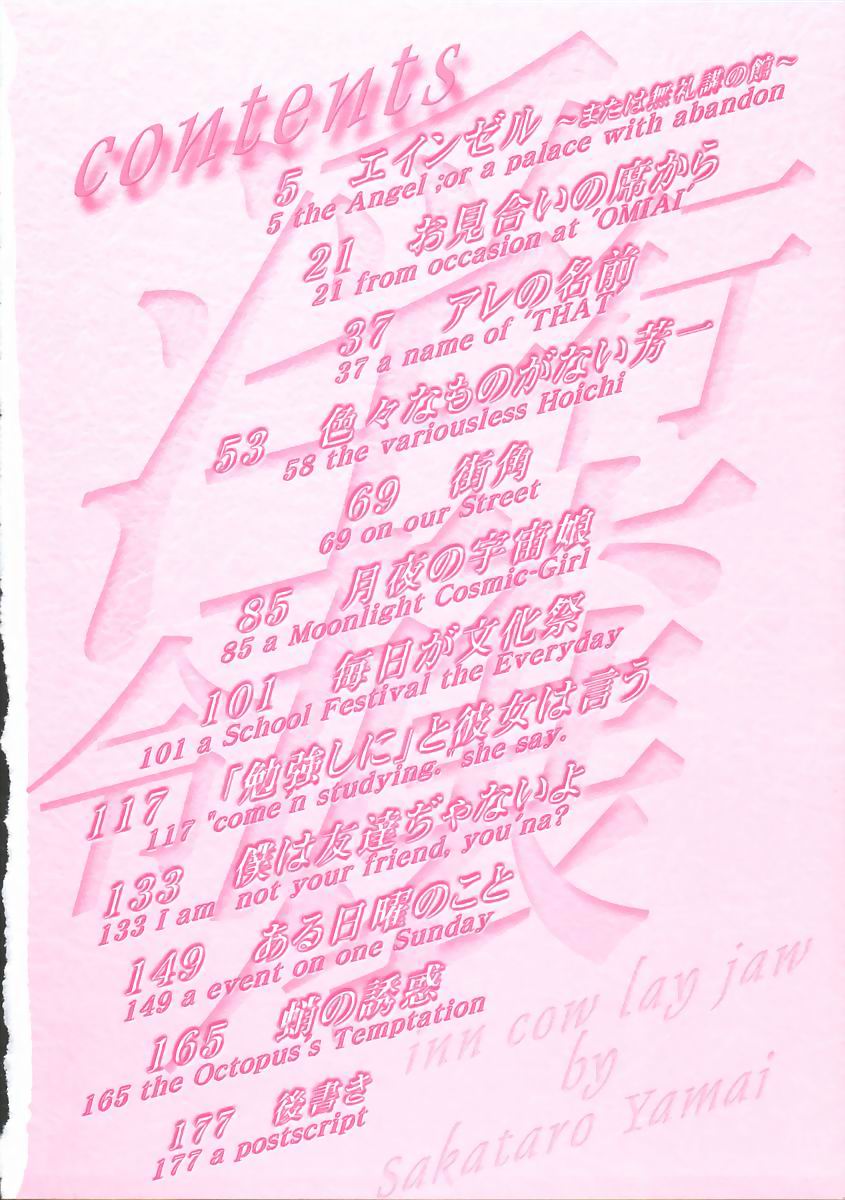 contents
5 エインゼル ～または無礼講の館～
5 the Angel ;or a palace with abandon
21 お見合いの席から
21 from occasion at 'OMIAI'
37 アレの名前
37 a name of 'THAT'
53 色々なものがない芳一
58 the variousless Hoichi
69 街角
69 on our Street
85 月夜の宇宙娘
85 a Moonlight Cosmic-Girl
101 毎日が文化祭
101 a School Festival the Everyday
117 「勉強しに」と彼女は言う
117 "come'n studying." she say.
133 僕は友達ぢゃないよ
133 I am not your friend, you'na?
149 ある日曜のこと
149 a event on one Sunday
165 蛸の誘惑
165 the Octopus's Temptation
177 後書き
177 a postscript
inn cow lay jaw
by
Sakataro Yamai